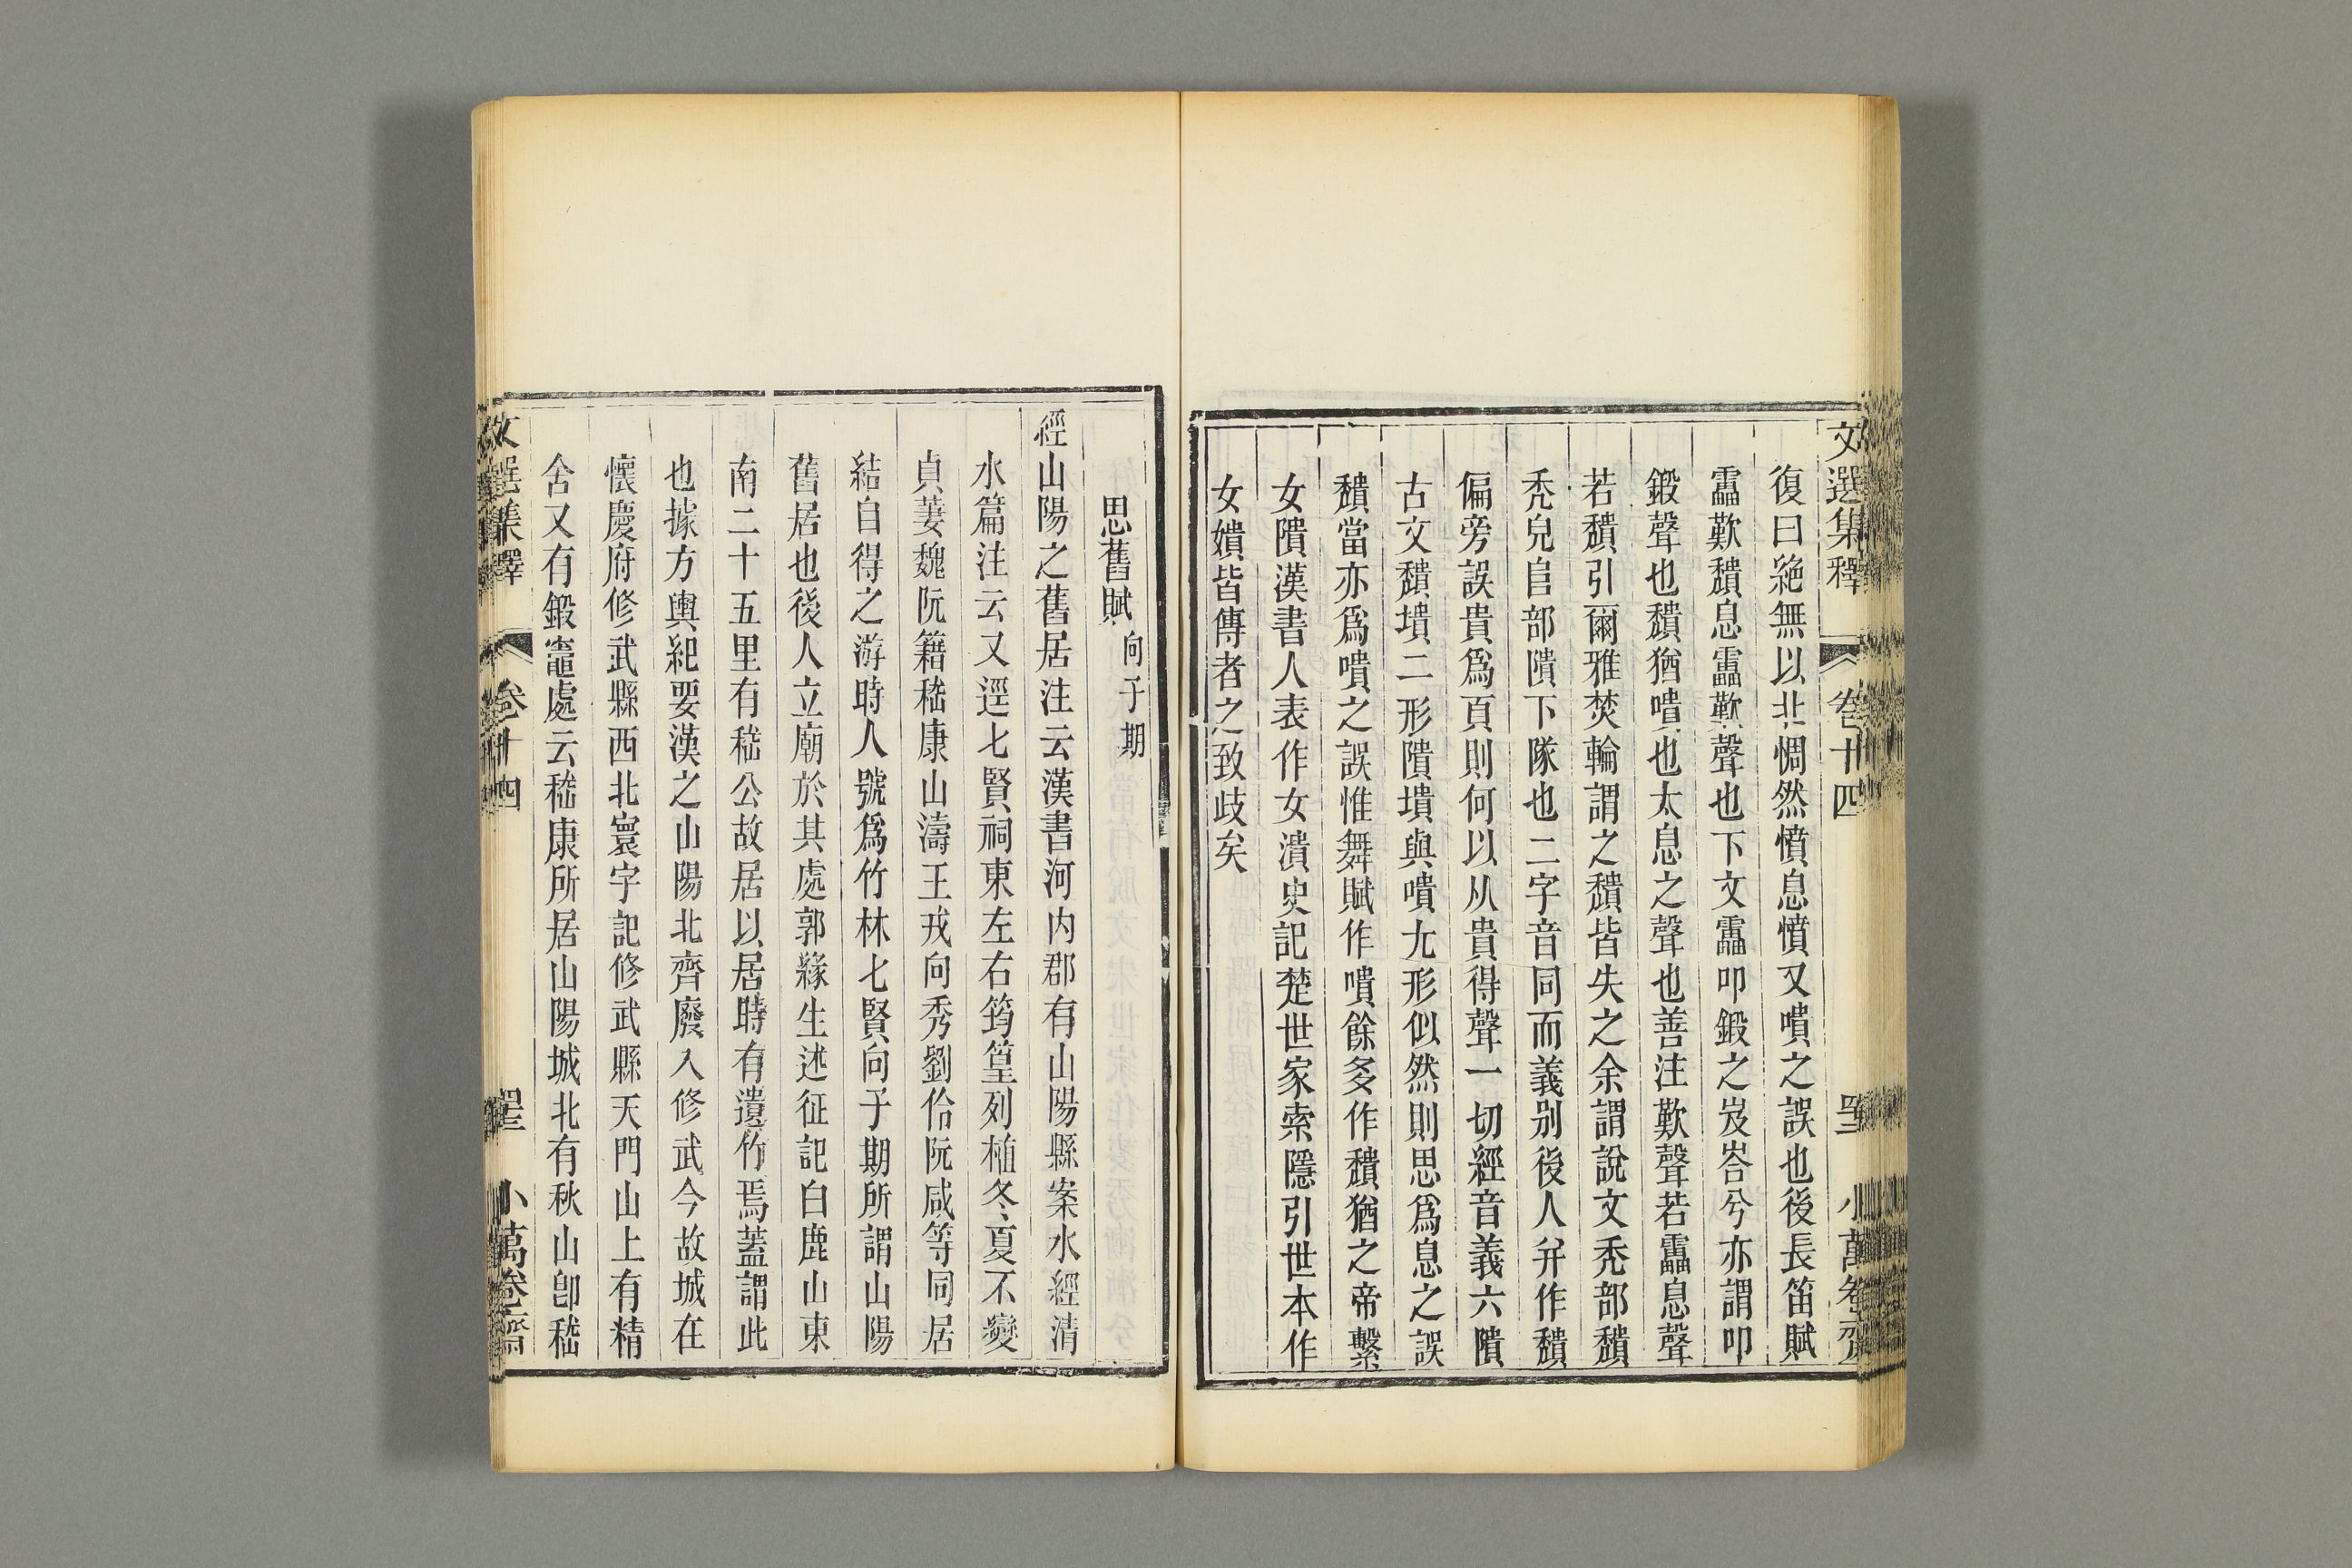 文選集釋 卷十四 小萬卷齋
復曰絶無以北惆然憤息憤又嘳之誤也後長笛賦
靁歎穨息靁歎聲也下文靁叩鍛之岌峇兮亦謂叩
鍛聲也穨猶嘳也太息之聲也善注歎聲若靁息聲
若穨引爾雅焚輪謂之穨皆失之余謂說文禿部穨
禿皃𨸏部隤下隊也二字音同而義别後人并作穨
偏旁誤貴爲頁則何以从貴得聲一切經音義六隤
古文穨墤二形隤墤與嘳尢形似然則思爲息之誤
穨當亦爲嘳之誤惟舞賦作嘳餘多作穨猶之帝繫
女隤漢書人表作女潰史記楚世家索隱引世本作
女嬇皆傳者之致歧矣
思舊賦 向子期
經山陽之舊居注云漢書河内郡有山陽縣案水經清
水篇注云又逕七賢祠東左右筠篁列植冬夏不變
貞萋魏阮籍嵇康山濤王戎向秀劉伶阮咸等同居
結自得之游時人號爲竹林七賢向子期所謂山陽
舊居也後人立廟於其處郭緣生述征記白鹿山東
南二十五里有嵇公故居以居時有遺竹焉葢謂此
也據方輿紀要漢之山陽北齊廢入修武今故城在
懷慶府修武縣西北寰宇記修武縣天門山上有精
舍又有鍛竈處云嵇康所居山陽城北有秋山卽嵇
文選集釋 卷十四 小萬卷齋